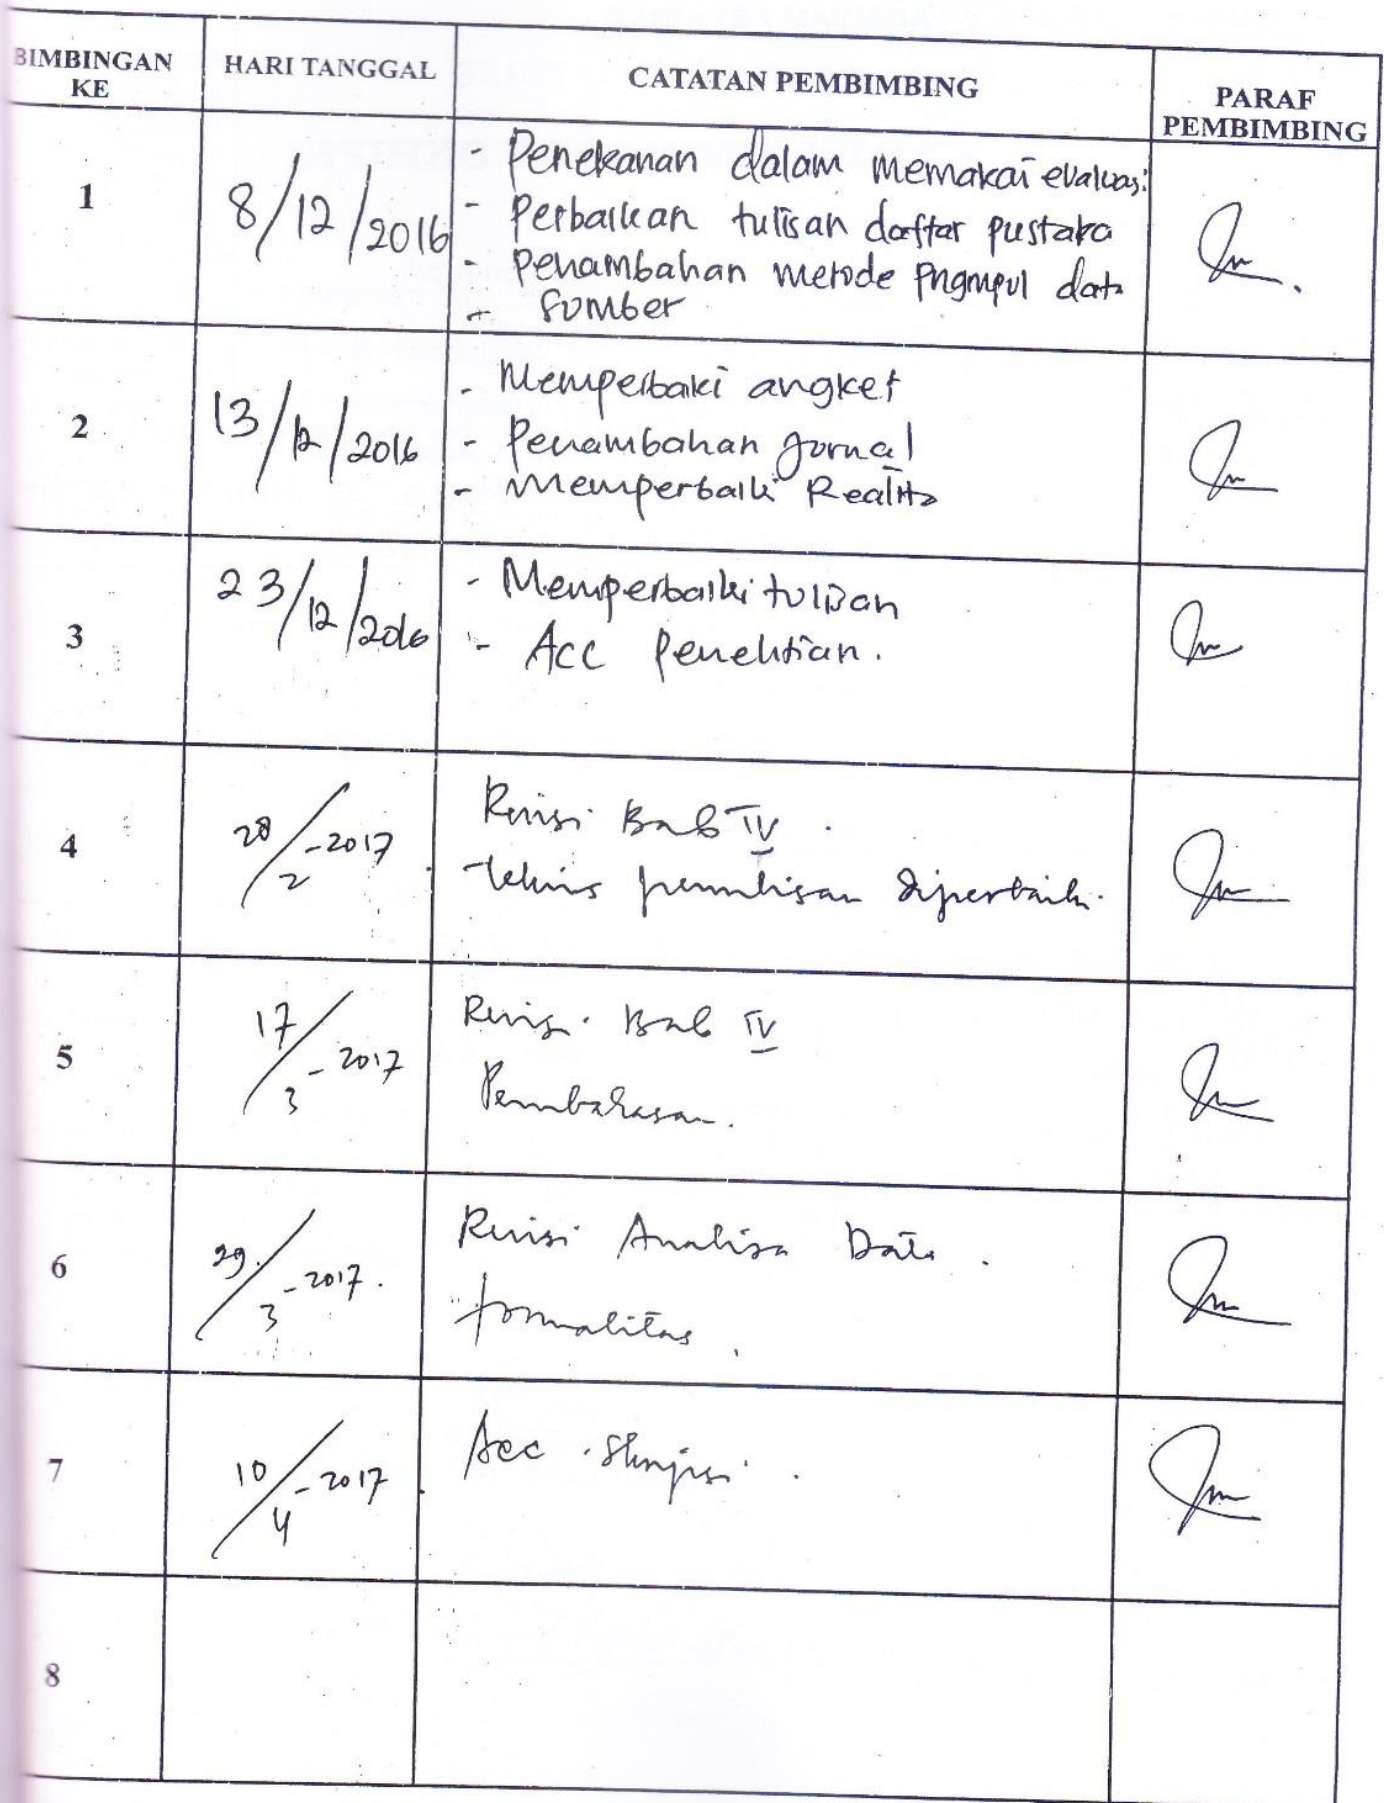 BIMBINGAN KE
HARI TANGGAL
CATATAN PEMBIMBING
PARAF PEMBIMBING
1
8/12/2016
- Penekanan dalam memakai evaluasi
- Perbaikan tulisan daftar pustaka
- Penambahan metode pngmpul data
- Sumber
2
13/12/2016
- Memperbaiki angket
- Penambahan Jornal
- Memperbaiki Realita
3
23/12/2016
- Memperbaiki tulisan
- Acc Penelitian.
4
28/2-2017
Revisi Bab IV.
Teknis penulisan diperbaiki.
5
17/3-2017
Revisi Bab IV
Pembahasan.
6
29/3-2017.
Revisi Analisa Data.
formalitas.
7
10/4-2017
Acc Skripsi.
8